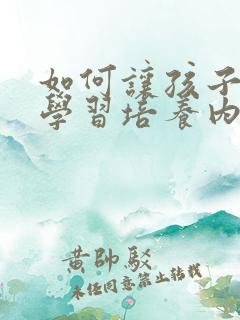 如何讓孩子
學習培養內
黃帥駁
未經同意禁止轉載